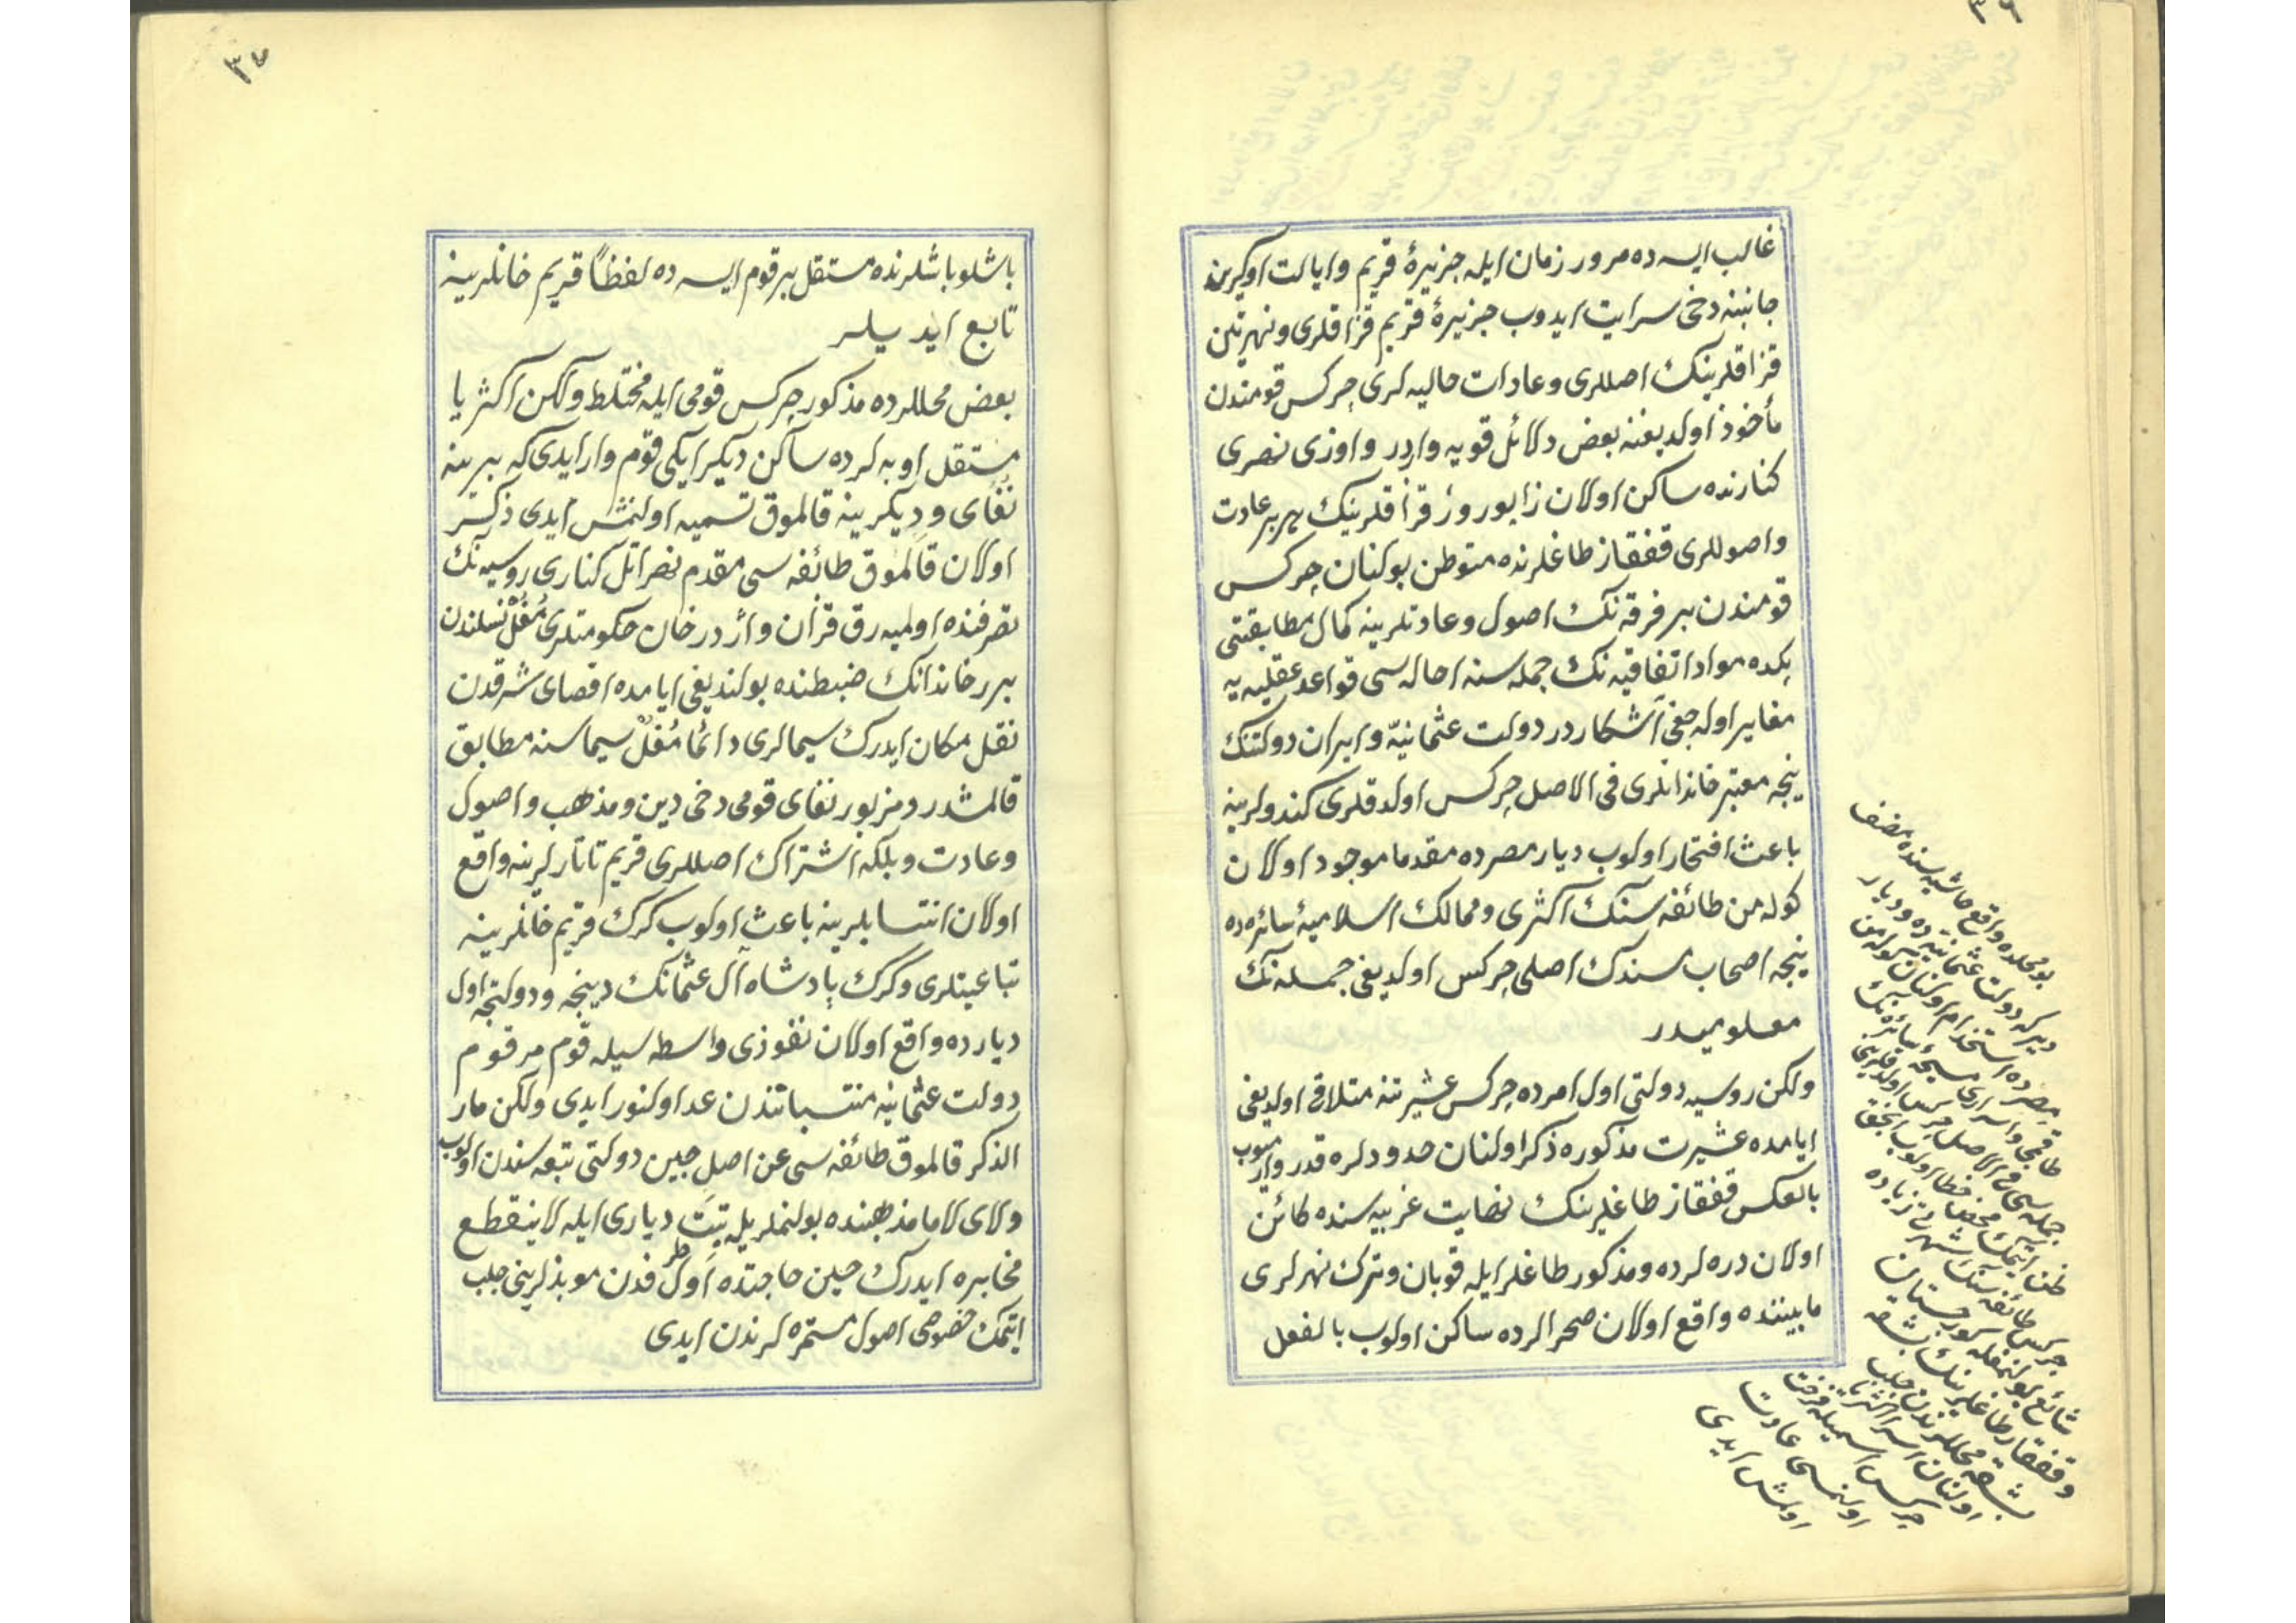 ٣٦
غالب ایسه ده مرور زمان ایله جزیرهٔ قریم و ایالت اوکرین
جانبنه دخی سرایت ایدوب جزیرهٔ قریم قزاقلری و نهر تن
قزاقلرینك اصللری و عادات حالیه لری چركس قومندن
مأخوذ اولدیغنه بعض دلائل قویه واردر و اوزی نهری
كنارنده ساكن اولان زاپوروژ قزاقلرینك بهر بر عادت
و اصوللری قفقاز طاغلرنده متوطن بولنان چركس
قومندن بر فرقه نك اصول و عادتلرینه كمال مطابقتی
بكده مواد اتفاقیه نك جمله سنه احاله سی قواعد عقلیه یه
مغایر اوله جغی آشكاردر دولت عثمانیّه و ایران دولتنك
نیجه معتبر خاندانلری فی الاصل چركس اولدقلری كندولرینه
باعث افتخار اولوب دیار مصرده مقدما موجود اولان
كوله من طائفه سنك اكثری و ممالك اسلامیهٔ سائره ده
نیجه اصحاب مسندك اصلی چركس اولدیغی جمله نك
معلومیدر
ولكن روسیه دولتی اول امرده چركس عشیرتنه متلاقی اولدیغی
ایامده عشیرت مذكوره ذكر اولنان حدودلره قدر وارمیوب
بالعكس قفقاز طاغلرینك نهایت غربیه سنده كائن
اولان دره لرده و مذكور طاغلر ایله قوبان و ترك نهرلری
مابیننده واقع اولان صحرالرده ساكن اولوب بالفعل
بو محلده واقع حاشیه سنده مصنف
دیر كه دولت عثمانیه ده و دیار
مصرده استخدام اولنان كوله من
طاقمی و اسرای مسیحیهٔ سائره نك
جمله سی فی الاصل چركس اولدقلرینی
ظن ایتمك محض خطا اولوب انجق
چركس طائفه سنك شهرتی زیاده
شائع بولنمغله كورجستان
و قفقاز طاغلرینك بشقه
بشقه محللرندن جلب
اولنان اسرا اكثریا
چركس اسمیله فروخت
اولنمسی عادت
اولمش ایدی
٣٧
باشلو باشلرنده مستقل بر قوم ایسه ده لفظاً قریم خانلرینه
تابع ایدیلر
بعض محللرده مذكور چركس قومی ایله مختلط و لكن اكثریا
مستقل اوبه لرده ساكن دیكر ایكی قوم وار ایدی كه برینه
نُغای و دیكرینه قالموق تسمیه اولنمش ایدی ذكر
اولان قالموق طائفه سی مقدم نهر اتل كناری روسیه نك
تصرفنده اولمیه رق قزان و اژدرخان حكومتلری مُغُلْ نسلندن
برر خاندانك ضبطنده بولندیغی ایامده اقصای شرقدن
نقل مكان ایدرك سیمالری دائما مُغُلْ سیماسنه مطابق
قالمشدر و مزبور نغای قومی دخی دین و مذهب و اصول
و عادت و بلكه اشتراك اصللری قریم تاتارلرینه واقع
اولان انتسابلرینه باعث اولوب كرك قریم خانلرینه
تباعیتلری و كرك پادشاه آل عثمانك دینجه و دولتجه اول
دیارده واقع اولان نفوذی واسطه سیله قوم مرقوم
دولت عثمانیه منتسباتندن عد اولنور ایدی ولكن مار
الذكر قالموق طائفه سی عن اصل چین دولتی تبعه سندن اولوب
و لای لاما مذهبنده بولنملریله تبَت دیاری ایله لاینقطع
مخابره ایدرك حین حاجتده اول طرفدن موبذلرینی جلب
ایتمك خصوصی اصول مستمره لرندن ایدی